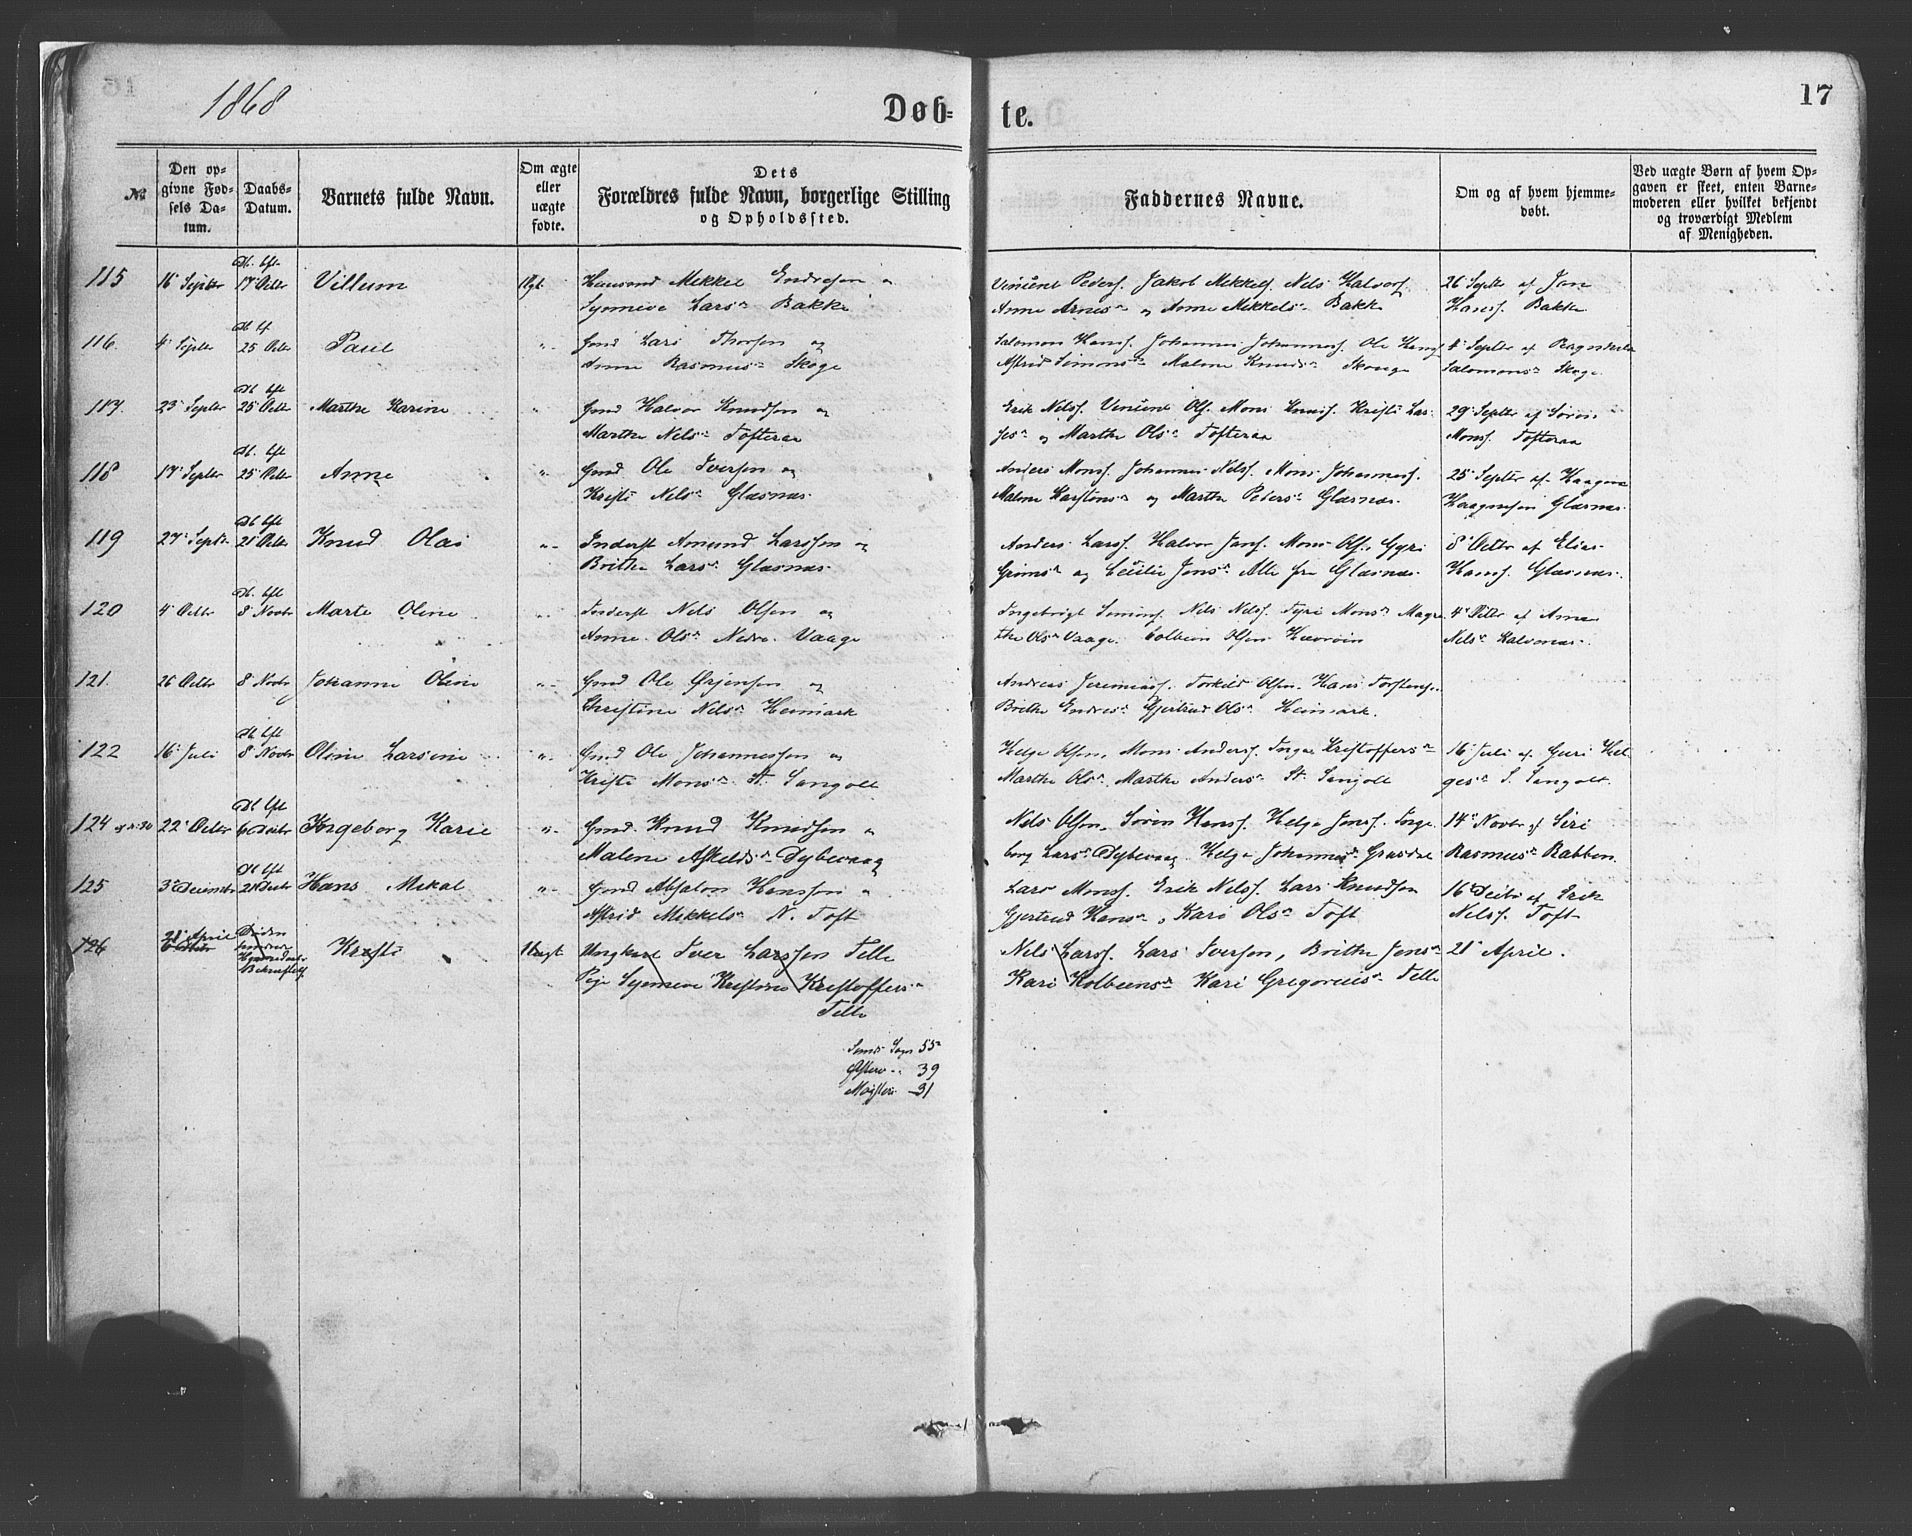 1868
Døb-
te.
17
№
Den opgivne Fødsels Datum.
Daabs-Datum.
Barnets fulde Navn.
Om ægte eller uægte fødte.
Dets Forældres fulde Navn, borgerlige Stilling og Opholdssted.
Faddernes Navne.
Om og af hvem hjemmedøbt.
Ved uægte Børn af hvem Opgaven er skeet, enten Barnemoderen eller hvilket bekjendt og troværdigt Medlem af Menigheden.
115 16 Septbr 17 Octbr Villum Ægt. Huusmd Mikkel Endresen &
Synneve Larsn Bakke
Vincent Peders. Jakob Mikkels. Nels Halvors.
Anne Arnesn og Anne Mikkelsn Bakke
26 Septbr af Jan
Hans. Bakke
116. 4 Septbr 25 Octbr Paul " Gmd Lars Thorsen og
Anne Rasmusn Skoge
Salomon Hans. Johannes Johanness. Ole Hans.
Astrid Simonsn Malene Knudsn Skouge
Septbr af Ragnhilda
Salomonsn Skoge
117. 23 Septbr 25 Octbr Marthe Karine " Gmd Halvor Knudsen og
Marthe Nelsn Tofteraa
Erik Nels. Vincent Ols. Mons Knuds. Kristi Lar-
sesn og Marthe Olsn Tofteraa
29 Septbr af Søren
Mons. Tofteraa
118 17 Septbr 25 Octbr Anne " Gmd Ole Iversen og
Kristi Nelsn Glæsnæs.
Anders Mons. Johannes Nels. Mons Johanness.
Malene Karstensn og Marthe Petersn Glæsnæs.
25 Septbr af Haagen
Haagensen Glæsnæs.
119 27 Septbr 25 Octbr Knud Olai " Inderst Amund Larssen og
Brithe Larsn Glæsnæs.
Anders Lars. Halvor Jans. Mons Ols. Gyri
Grimsn og Cecilie Jonsn Alle fra Glæsnæs.
8 Octbr af Elias
Hans. Glæsnæs.
120 4 Octbr 8 Novbr Marte Oline " Inderst Nels Olsen og
Anne Olsn Nedre Vaage
Ingebrigt Simons. Nels Nels. Syri Monsn Magre-
the Olsn Vaage. Kolbein Olsen
4 Octbr af Anne
Nelsn Kalvenæs.
121. 26 Octbr 8 Novbr Johanne Oline " Gmd Ole Ørjensen og
Christine Nelsn Heimark
Andreas Jeremias. Torkild Olsen. Hans Torstens.
Brithe Endresn Gjertrud Olsn Heimark.
122 16 Juli 8 Novbr Oline Larsine " Gmd Ole Johannessen og
Kristi Monsn St. Sangolt
Helge Olsen, Mons Anders. Inger Kristoffersn
Marthe Olsn Marthe Andersn St. Sangolt
16 Juli af Guri Hel-
gesn S. Sangolt.
124 22 Octbr 6 Decbr Ingeborg Karie " Gmd. Knud Knudsen og
Malene Askeldsn Dybevaag
Nels Olsen, Søren Hans. Helge Jons. Inge-
borg Larsn Dybevaag. Helge Johannesn Grasdal
14 Novbr af Siri
Rasmusn Rabben.
125 3 December Decbr Hans Mikal " Gmd Absalon Hanssen og
Astrid Mikkelsn N. Toft
Lars Mons. Erik Nels. Lars Knudsen
Gjertrud Hansn, Kari Olsn Toft
16 Decbr af Erik
Nels. Toft
126 21 April Kristi Uægt Ungkarl Iver Larssen Telle
Pige Synneve Kristine Kristoffersn
Telle
Nels Lars. Lars Iversen, Brithe Jensn
Kari Kolbeensn Kari Gregoriusn Telle
21 April.
Sunds Sogn 55
Østervo " 39
Møgster - 31